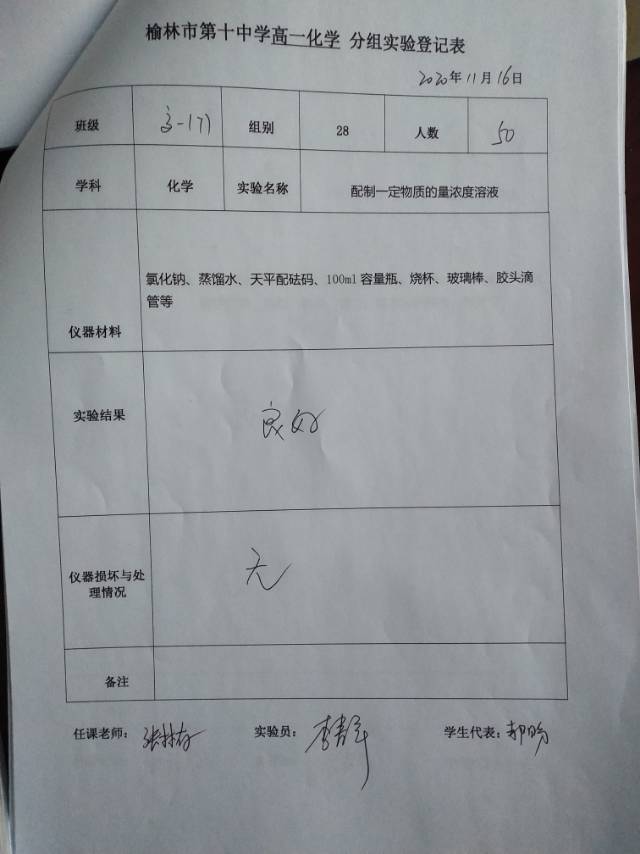 榆林市第十中学高一化学 分组实验登记表
2020年11月16日
班级 高一17) 组别 28 人数 50
学科 化学 实验名称 配制一定物质的量浓度溶液
氯化钠、蒸馏水、天平配砝码、100ml容量瓶、烧杯、玻璃棒、胶头滴
管等
仪器材料
实验结果 良好
仪器损坏与处
理情况
无
备注
任课老师： 实验员： 学生代表：